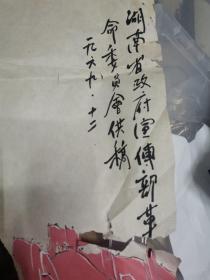 湖南省政府宣傳部革
命委員會供稿
一九六九·十二